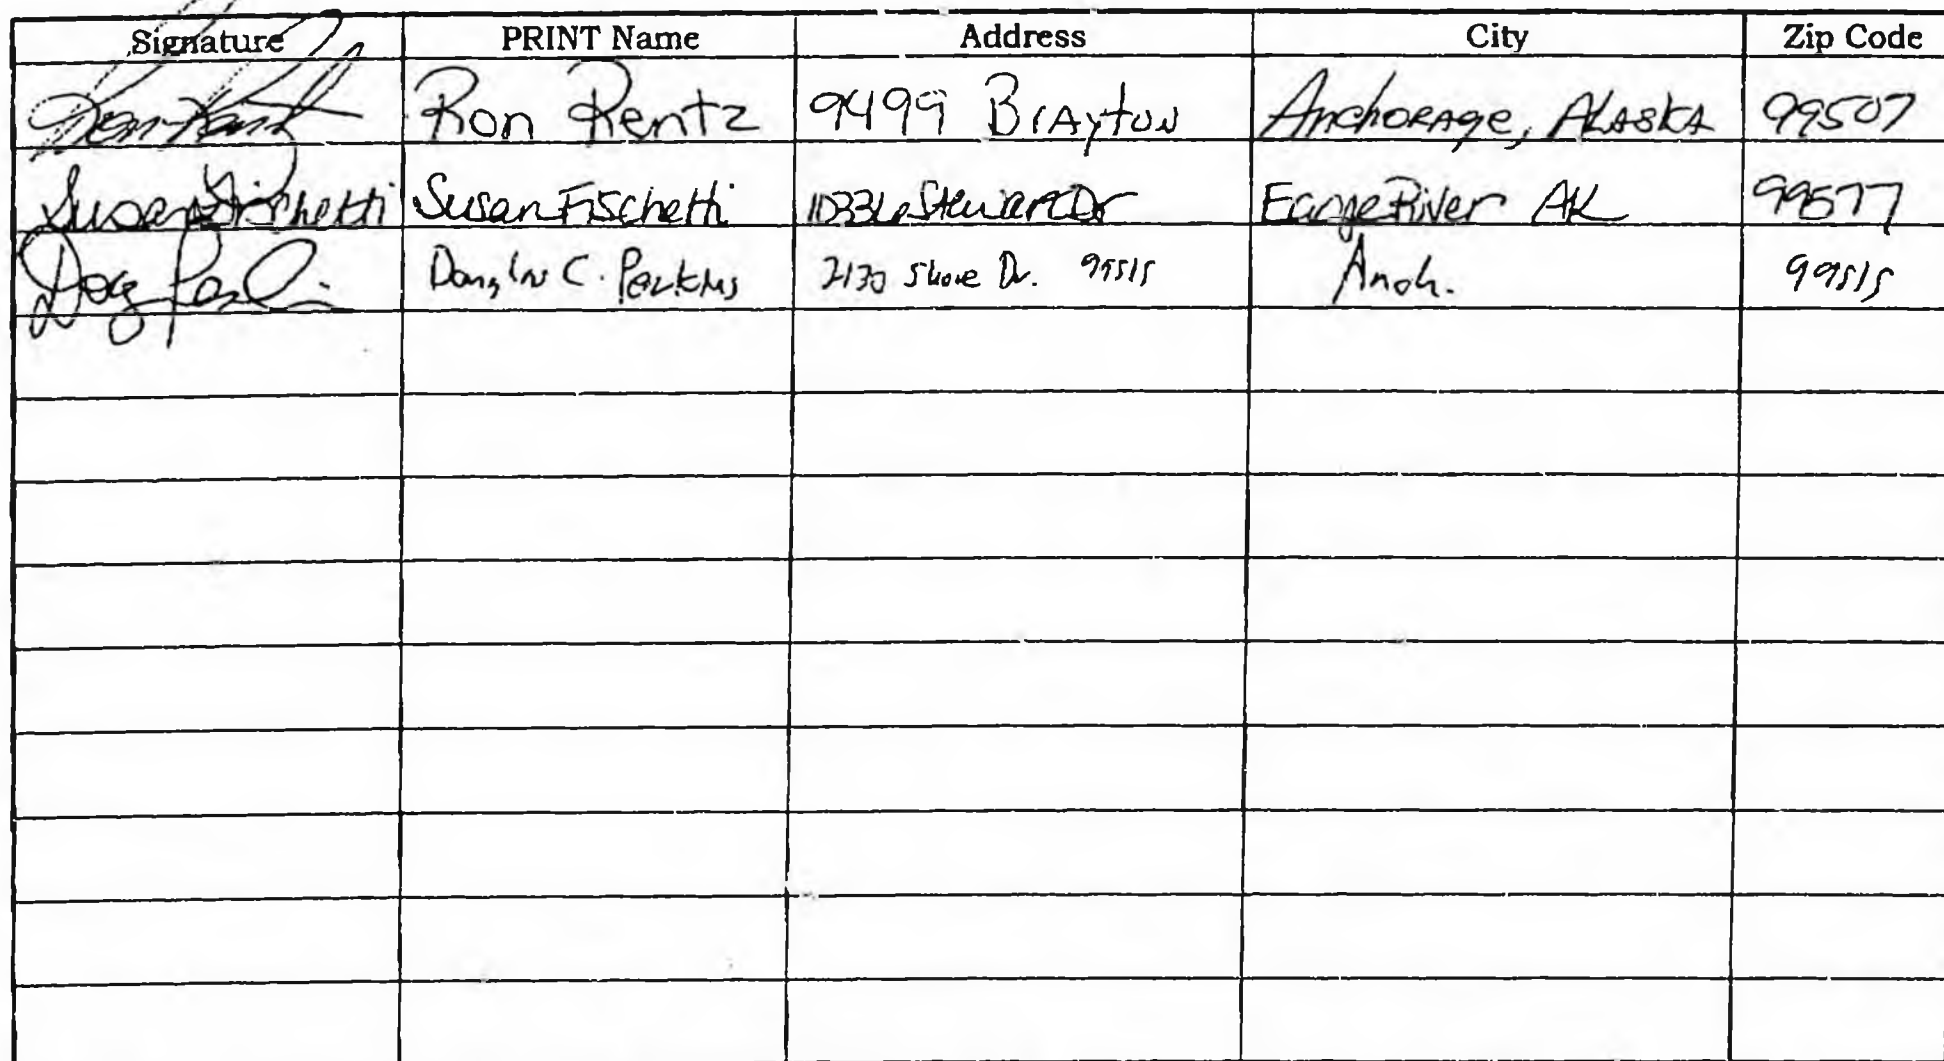 Signature PRINT Name Address City Zip Code
Ron Rentz Ron Rentz 9499 Brayton Anchorage, Alaska 99507
Susan Fischetti Susan Fischetti Stewart Dr Eagle River AK 99577
Doug Perkins Douglas C. Perkins 2130 Shore Dr. 99515 Anch. 99515